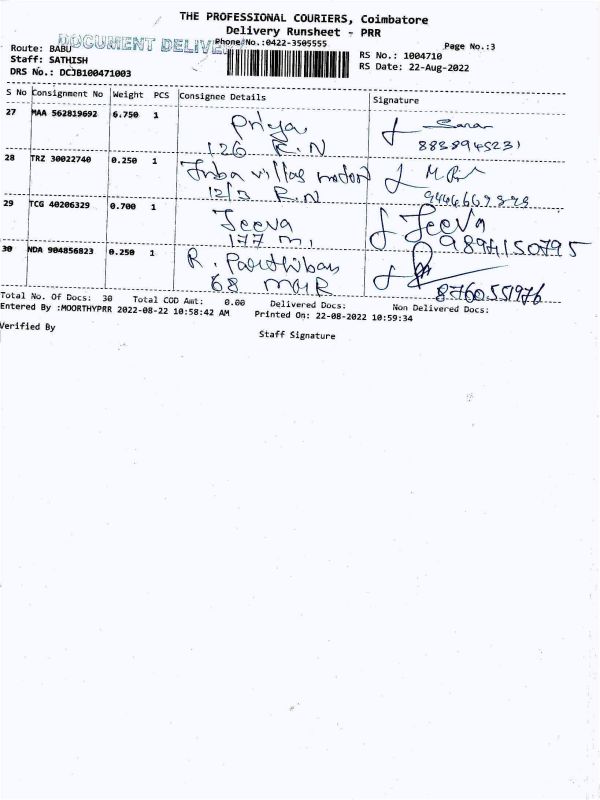 THE PROFESSIONAL COURIERS, Coimbatore
Delivery Runsheet - PRR
DOCUMENT DELIVE
Phone No.:0422-3505555
Page No.:3
Route: BABU
Staff: SATHISH
DRS No.: DCJB100471003
RS No.: 1004710
RS Date: 22-Aug-2022
S No Consignment No Weight PCS Consignee Details Signature
27 MAA 562819692 6.750 1 Priya Saran
126 R.N 8838945231
28 TRZ 30022740 0.250 1 Inba villas motor
12/3 R.N
29 TCG 40206329 0.700 1 Jeeva Jeeva
177 m1 9894150795
30 NDA 904856823 0.250 1 R. Parthiban
68 MGR 8760551976
Total No. Of Docs: 30 Total COD Amt: 0.00 Delivered Docs: Non Delivered Docs:
Entered By :MOORTHYPRR 2022-08-22 10:58:42 AM Printed On: 22-08-2022 10:59:34
Verified By
Staff Signature